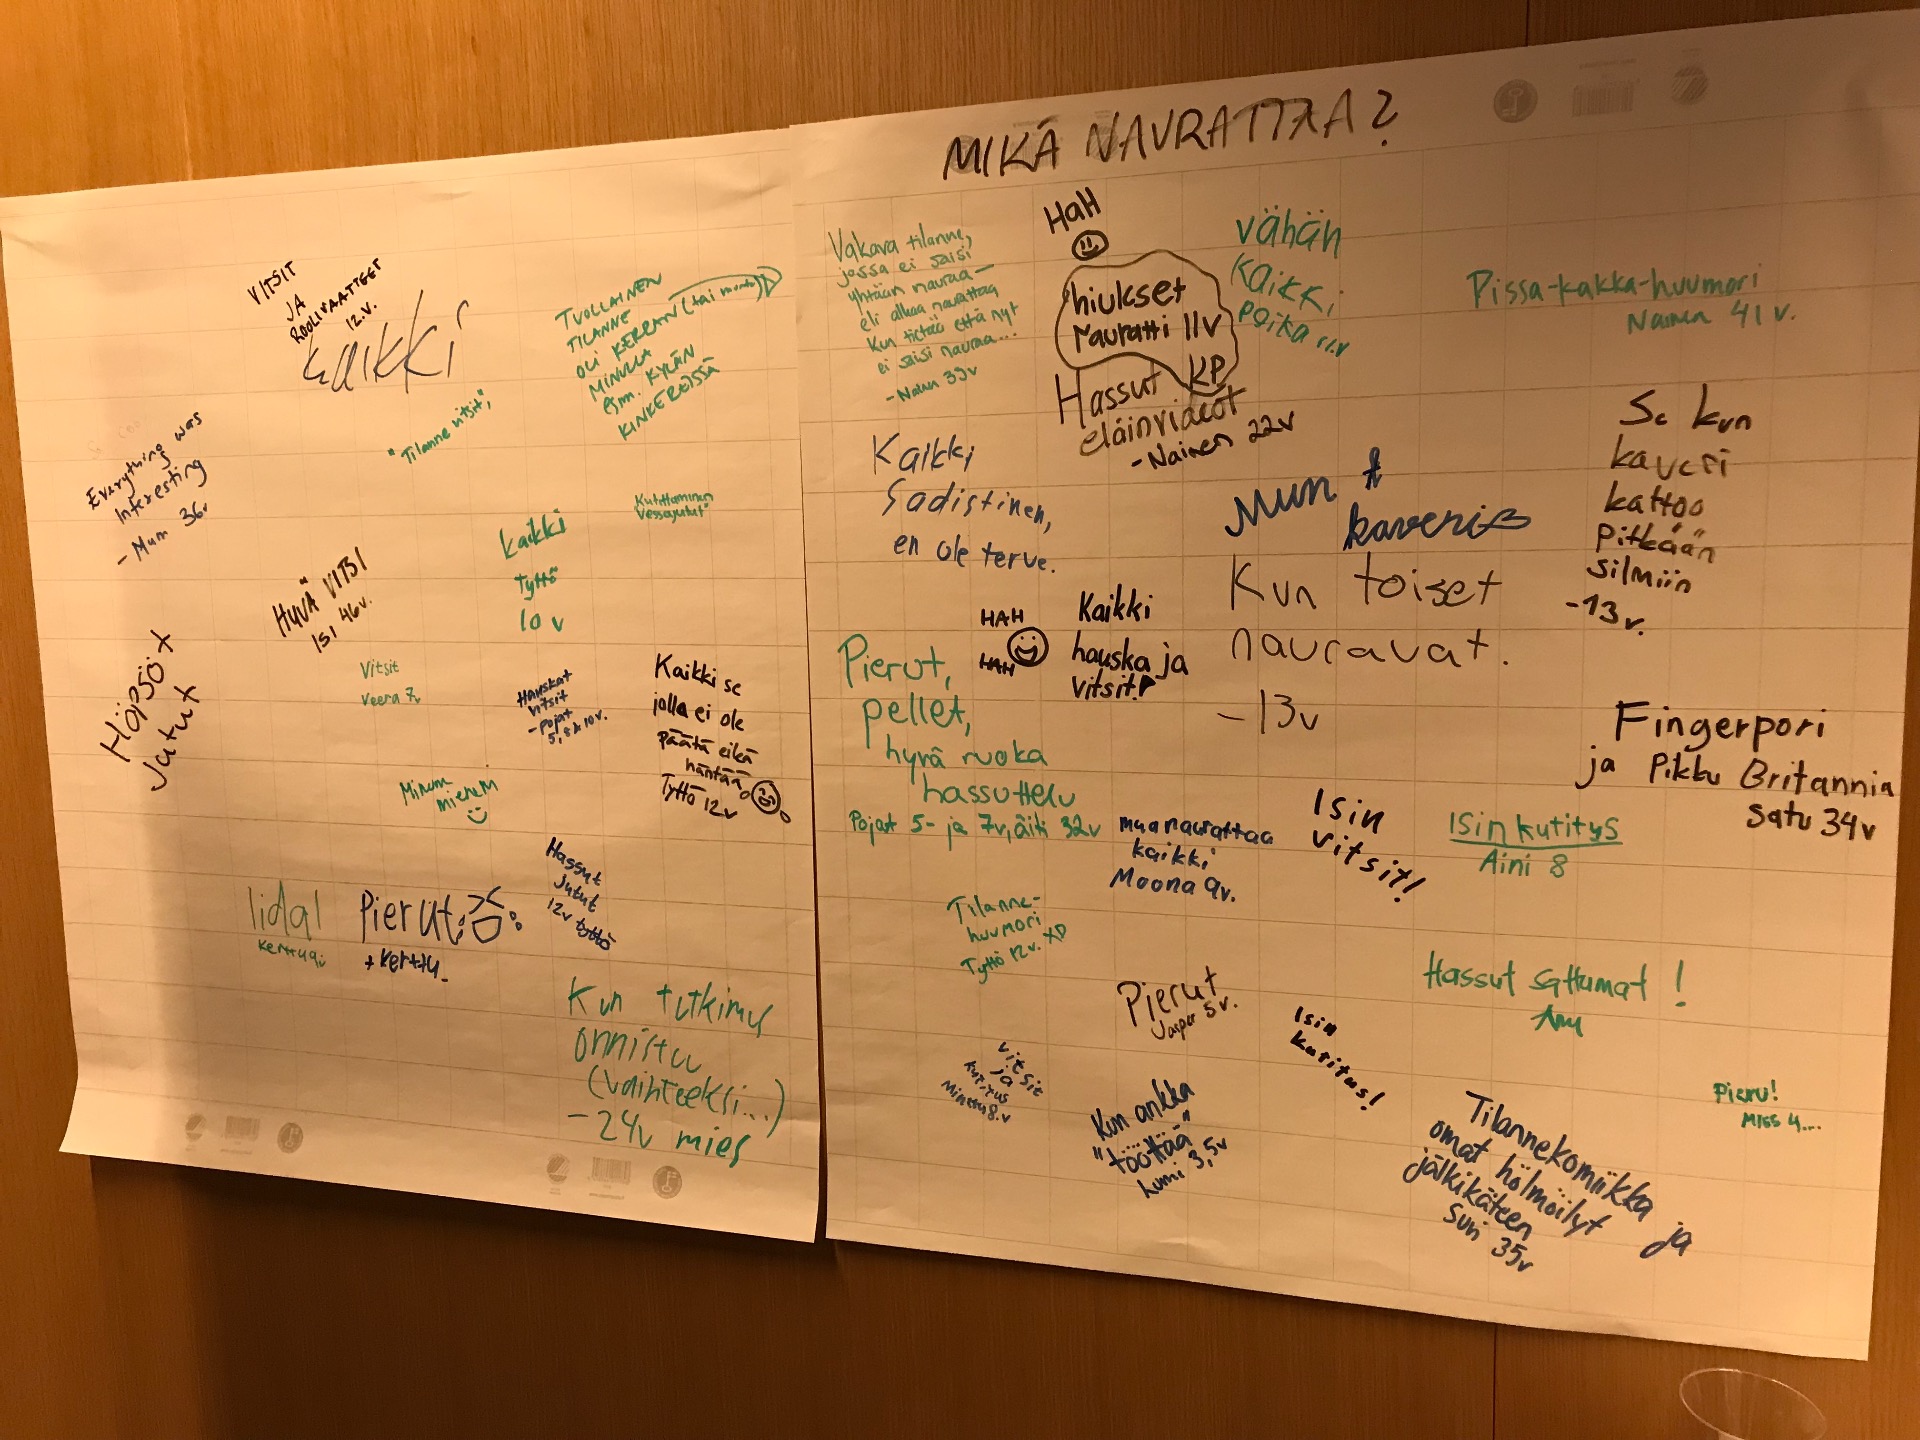 MIKÄ NAURATTAA?
VITSIT
JA
ROOLIVAATTEET
12.v.
kaikki
"Tilanne vitsit",
TUOLLAINEN
TILANNE
OLI KERRAN (tai monta)
MINULLA
esm. KYLÄN
KINKEREISSÄ
Everything was
Interesting
- Mum 36v
HUVÄ VITSI
ISI 46v.
kaikki
tyttö
10 v
Kutittaminen
Vessajutut"
Höpsöt
Jutut
Vitsit
Veera 7v.
Hauskat
vitsit
- Pojat
Kaikki se
jolla ei ole
päätä eikä
häntää
Tyttö 12v
Minun
mieheni
Hassut
jutut
12v tyttö
Iida!
Kerttu 9v
Pierut
+ Kerttu.
Kun tutkimus
onnistuu
(vaihteeksi...)
- 24v mies
Vakava tilanne,
jossa ei saisi
yhtään nauraa -
eli alkaa naurattaa
kun tietää että nyt
ei saisi nauraa...
- Nainen 39v
HaH
hiukset
Nauratti 11v
KP
vähän
kaikki
poika 11.v
Pissa-kakka-huumori
Nainen 41 v.
Hassut
eläinvideot
- Nainen 22v
Kaikki
Sadistinen,
en ole terve.
Mun
kaverit
Se kun
kaveri
kattoo
pitkään
silmiin
-13 v.
Kun toiset
nauravat.
- 13v
HAH
HAH
Kaikki
hauska ja
vitsit!
Pierut,
pellet,
hyvä ruoka
hassuttelu
Pojat 5- ja 7v, äiti 32v
Fingerpori
ja Pikku Britannia
Satu 34v
Isin
vitsit!
Isin kutitys
Aini 8
mua naurattaa
kaikki
Moona 9v.
Tilanne-
huumori
Tyttö 12v. XD
Pierut
Jasper 5v.
Hassut sattumat!
Anu
Isin
kutitus!
vitsit
ja
kutitus
Minttu 8.v
Kun ankka
"töttää"
Lumi 3,5v
Pieru!
Miss 4...
Tilannekomiikka ja
omat hölmöilyt
jälkikäteen
Suvi 35v